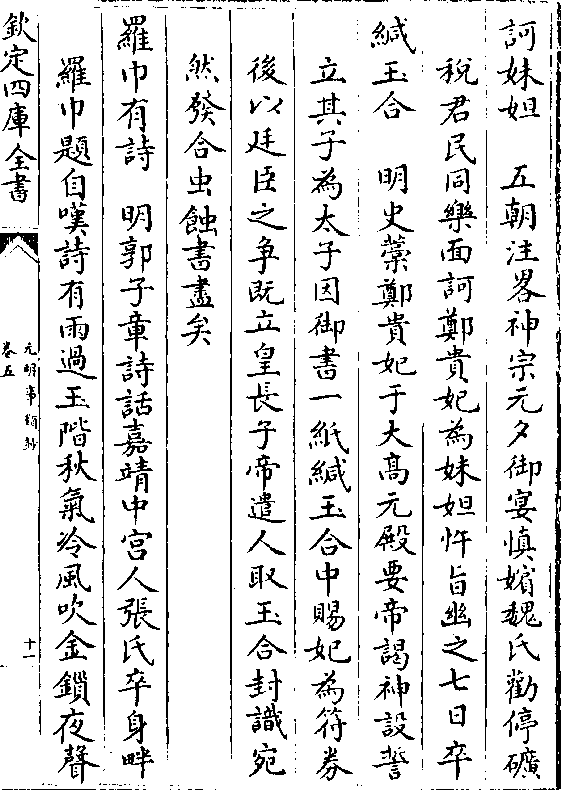 訶妹妲　五朝注畧神宗元夕御宴慎嬪魏氏勸停礦
稅君民同樂面訶鄭貴妃為妹妲忤旨幽之七日卒
緘玉合　明史藁鄭貴妃于大髙元殿要帝謁神設誓
立其子為太子因御書一紙緘玉合中賜妃為符券
後以廷臣之争既立皇長子帝遣人取玉合封識宛
然發合虫蝕書盡矣
羅巾有詩　明郭子章詩話嘉靖中宮人張氏卒身畔
羅巾題自嘆詩有雨過玉階秋氣冷風吹金鎖夜聲
欽定四庫全書
元明事類鈔
卷五
十一